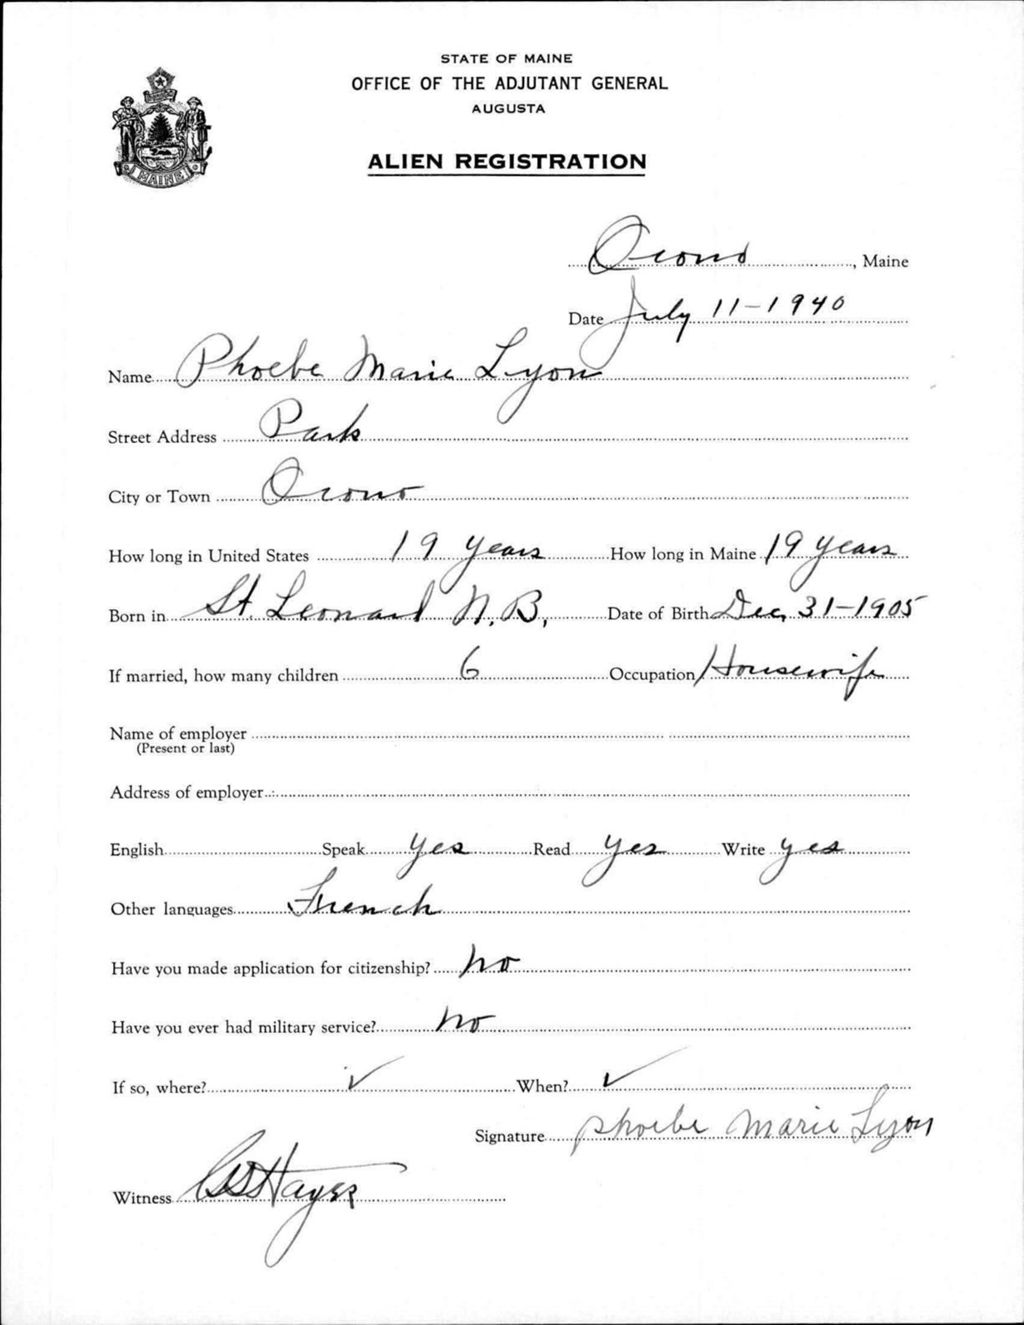 STATE OF MAINE
OFFICE OF THE ADJUTANT GENERAL
AUGUSTA
ALIEN REGISTRATION
MAINE
Orono, Maine
Date July 11-1940
Name Phoebe Marie Lyon
Street Address Park
City or Town Orono
How long in United States 19 years How long in Maine 19 years
Born in St. Leonard N.B. Date of Birth Dec, 31-1905
If married, how many children 6 Occupation Housewife
Name of employer
(Present or last)
Address of employer
English Speak yes Read yes Write yes
Other languages French
Have you made application for citizenship? no
Have you ever had military service? no
If so, where? ✓ When? ✓
Signature Phoebe Marie Lyon
Witness Hayes